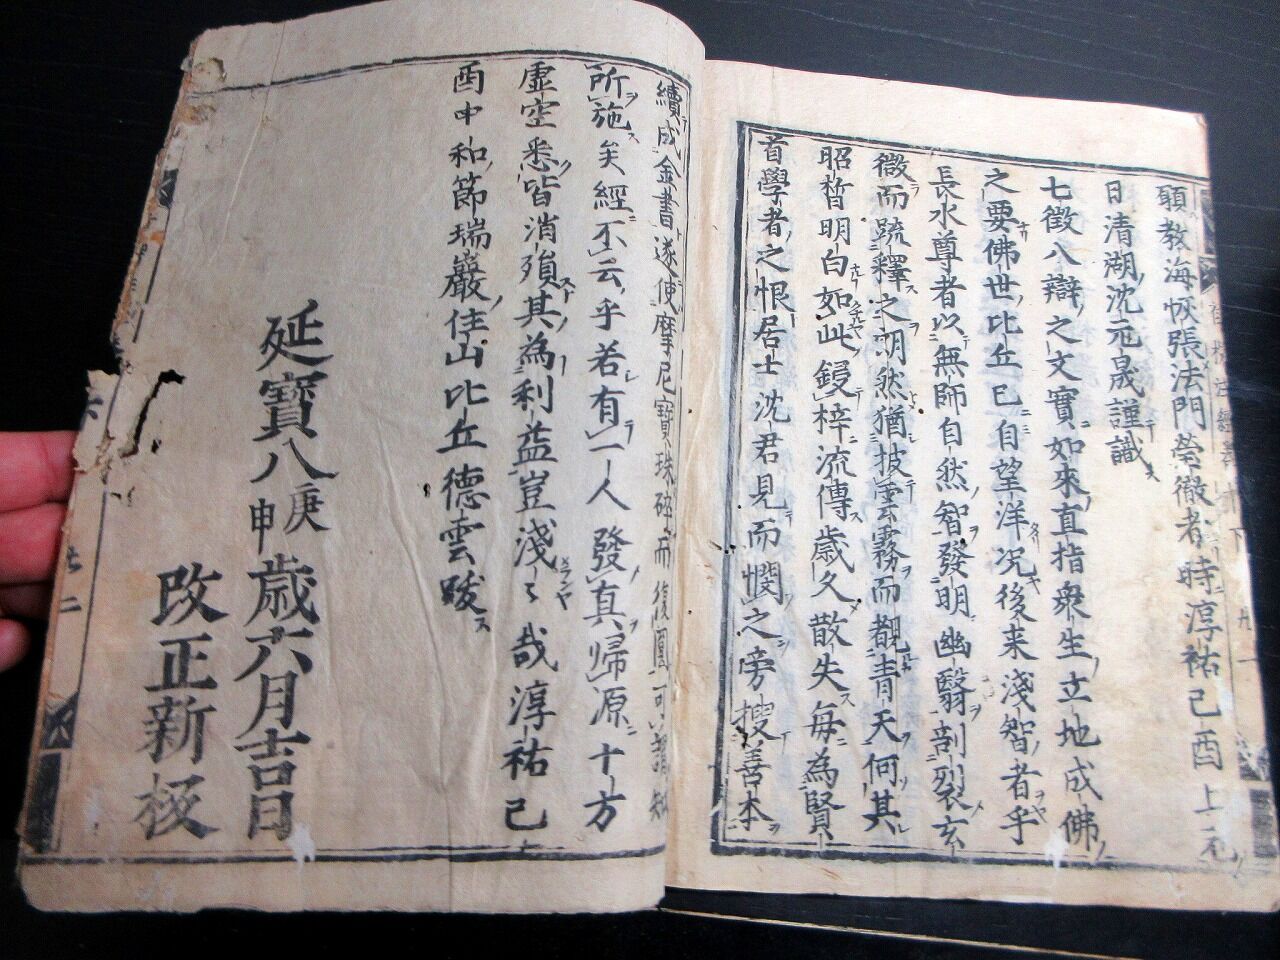 願教海恢張法門榮徹者時淳祐己酉上元
日清湖沈元晟謹識
七徵八辯之文實如來直指衆生立地成佛
之要佛世比丘已自望洋况後来淺智者乎
長水尊者以無師自然智發明幽翳剖裂玄
微而䟽釋之明然猶披雲霧而覩青天何其
昭晢明白如此鋟梓流傳歳久散失毎為賢
首學者之恨居士沈君見而憫之旁搜善本
續成金書遂使摩尼寶珠破而復圓可謂知
所施矣經不云乎若有一人發真歸源十方
虚空悉皆消殞其為利益豈淺々哉淳祐己
酉中和節瑞巖住山比丘德雲跋
延寶八庚申歳六月吉日
改正新板